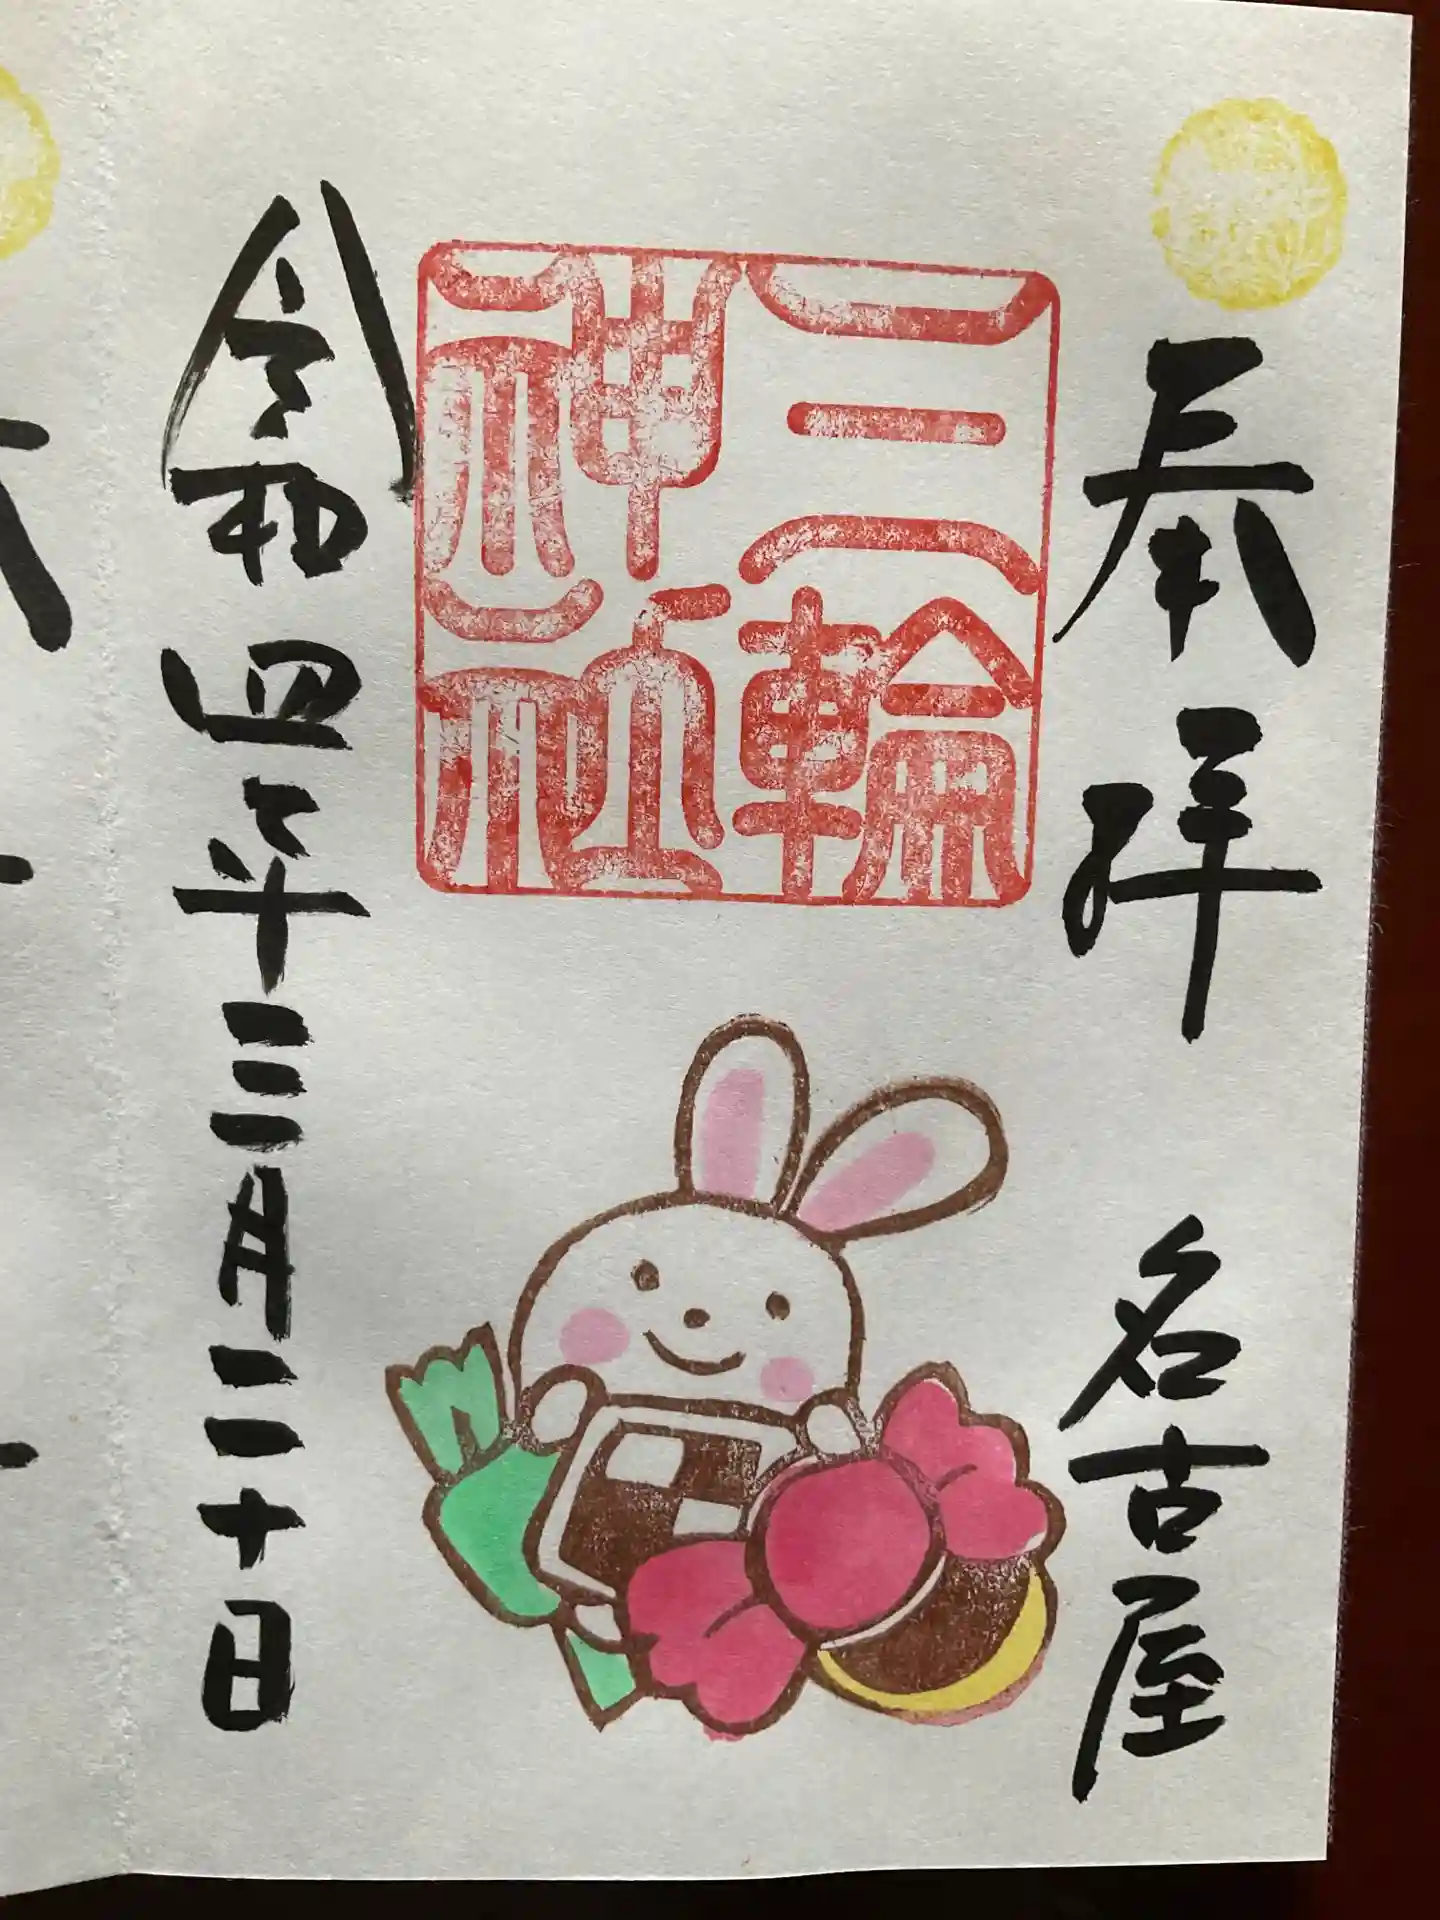 奉拝 名古屋
三輪
神社
令和四年三月二十日